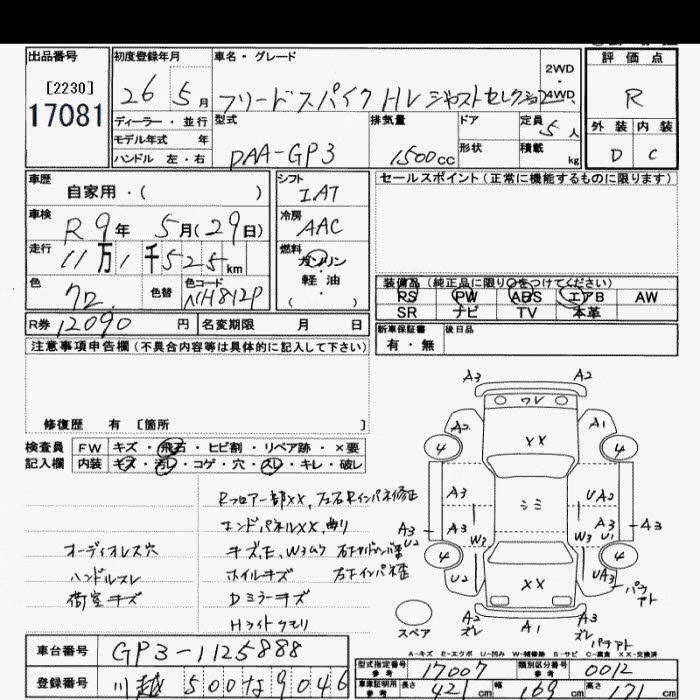 出品番号
[2230]
17081
初度登録年月
26 5月
ディーラー・並行
モデル年式 年
ハンドル 左・右
車名・グレード
フリードスパイク HV ジャストセレクション
2WD
4WD
型式
DAA-GP3
排気量
1500cc
ドア
形状
定員
5人
積載
kg
評価点
R
外装 内装
D C
車歴
自家用・( )
車検
R9年 5月(29日)
走行
11万1千525km
色
クロ
色替
色コード
NH812P
R券 12090 円
名変期限 月 日
シフト
IAT
冷房
AAC
燃料
ガソリン
・
軽油
・
( )
セールスポイント(正常に機能するものに限ります)
装備品(純正品に限り○をつけてください)
PS PW ABS エアB AW
SR ナビ TV 本革
新車保証書
有・無
後日品
注意事項申告欄(不具合内容等は具体的に記入して下さい)
修復歴 有 [箇所 ]
検査員
記入欄
FW キズ・飛石・ヒビ割・リペア跡・×要
内装 キズ・汚れ・コゲ・穴・スレ・キレ・破レ
オーディオレス穴
ハンドルスレ
荷室キズ
Rフロアー部XX、左右Rインパネ修正
エンドパネルXX 曲り
ホイルキズ
右下インパネ歪
Dミラーキズ
Hライトクモリ
A3 A2
ワレ
A2 XX A1
4 4
A3 ミミ UA2
A3 U2 A3 W3 W3 A3 U1 A3
4 4
U2 XX UA3
パテアト
A2 ズレ A1 A3 ズレ
パテアト
スペア
A-キズ E-エクボ U-凹み W-補修跡 S-サビ C-腐食 XX-交換済
車台番号 GP3-1125888
登録番号 川越 500 な 9046
型式指定番号 参考 17007
類別区分番号 参考 0012
車庫証明用 参考 長さ 421cm 幅 169cm 高さ 171cm